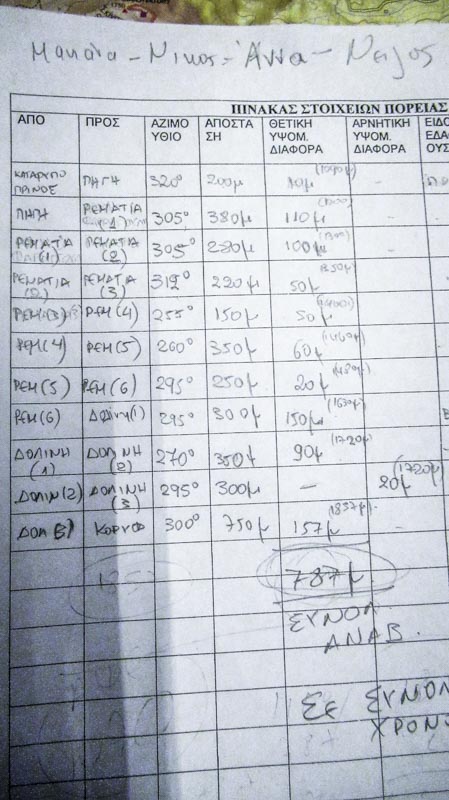 Μακάια - Νικος - Άννα - Νείλος
ΠΙΝΑΚΑΣ ΣΤΟΙΧΕΙΩΝ ΠΟΡΕΙΑΣ
ΑΠΟ ΠΡΟΣ ΑΖΙΜΟΥΘΙΟ ΑΠΟΣΤΑΣΗ ΘΕΤΙΚΗ ΥΨΟΜ. ΔΙΑΦΟΡΑ ΑΡΝΗΤΙΚΗ ΥΨΟΜ. ΔΙΑΦΟΡΑ ΕΙΔΟ ΕΔΑΦ ΟΥΣ
ΠΡΙΝΟΣ ΠΗΓΗ 320° 200μ -
ΠΗΓΗ ΡΕΜΑΤΙΑ (1) 305° 380μ 110μ -
ΡΕΜΑΤΙΑ (1) ΡΕΜΑΤΙΑ (2) 305° 100μ -
ΡΕΜΑΤΙΑ (2) ΡΕΜΑΤΙΑ (3) 312° 220μ 50μ -
ΡΕΜ(4) 255° 150μ 50μ -
ΡΕΜ(4) ΡΕΜ(5) 260° 350μ 60μ -
ΡΕΜ(5) ΡΕΜ(6) 295° 250μ 20μ -
ΡΕΜ(6) Δολίνη(1) 295° 300μ 150μ -
ΔΟΛΙΝΗ (1) ΔΟΛΙΝΗ (2) 270° 350μ 90μ -
ΔΟΛΙΝ(2) ΔΟΛΙΝΗ (3) 295° 300μ - 20μ
ΚΟΡΥΦ 300° 750μ 157μ (1857μ) -
787μ
ΣΥΝΟΛ
ΑΝΑΒ.
Σε ΣΥΝΟΛ
ΧΡΟΝΟ